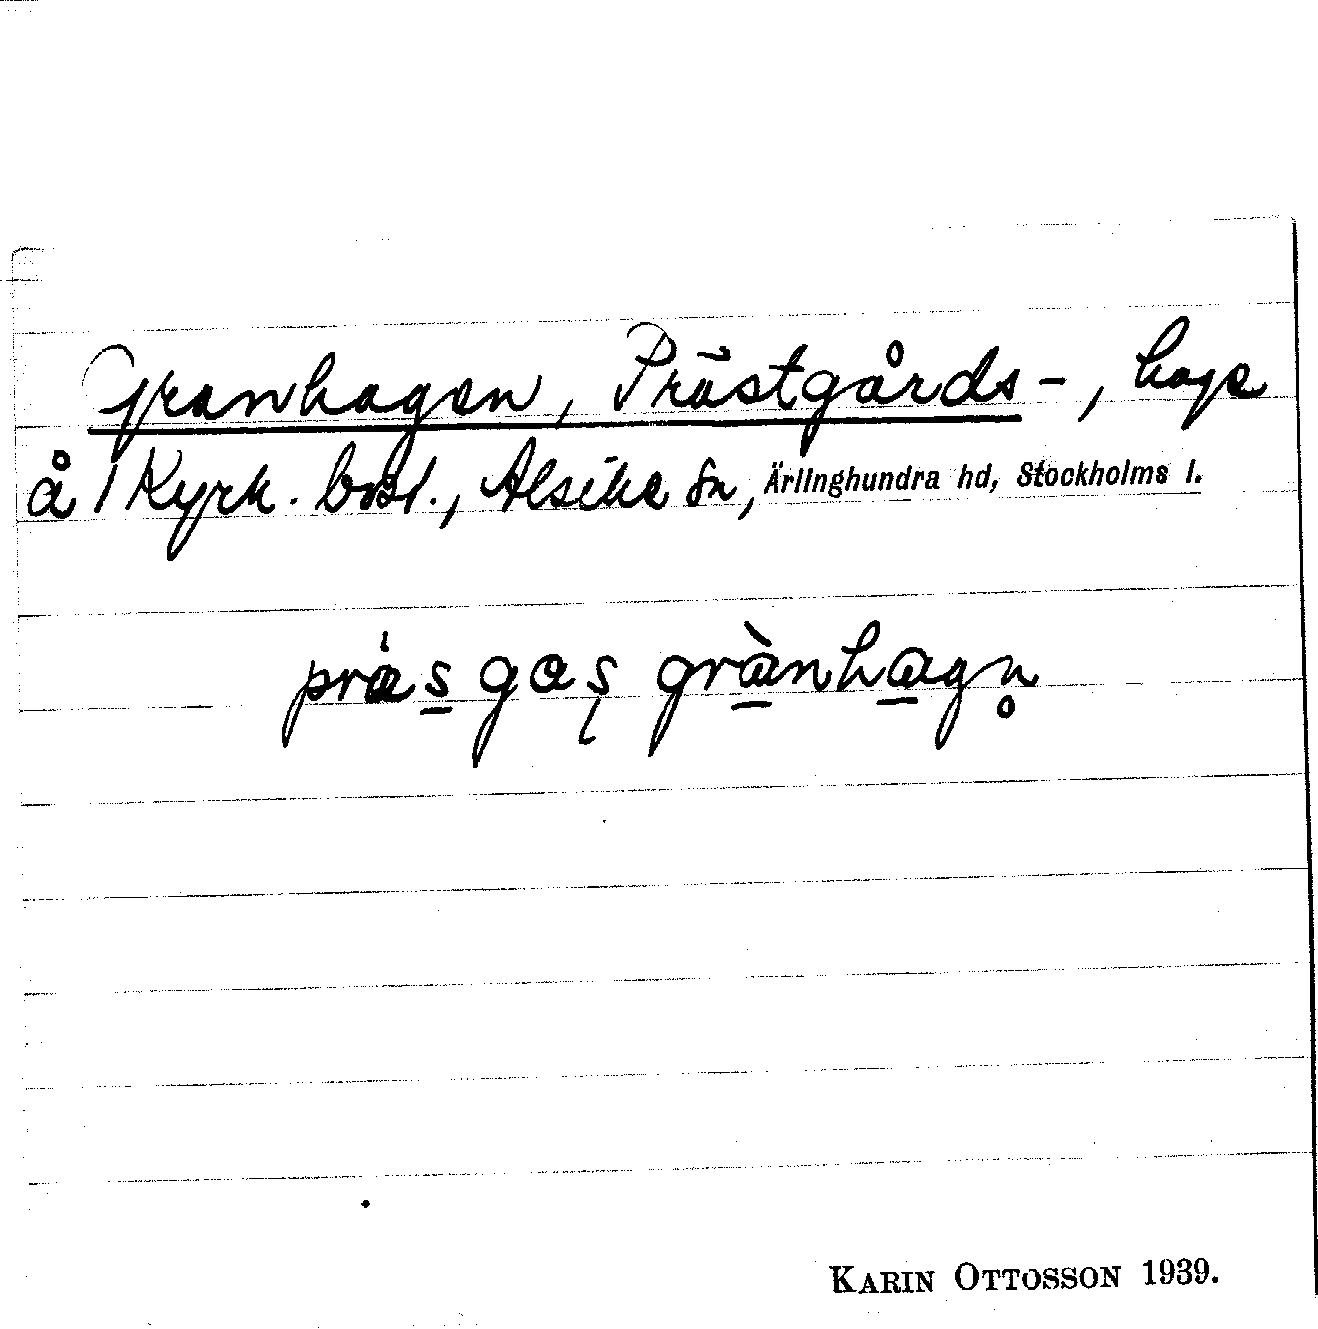 Granhagen, Prästgårds-, hage
å 1 Kyrk. bost., Alsike sn, Ärlinghundra hd, Stockholms l.
präs gaş grànhagn̥
KARIN OTTOSSON 1939.